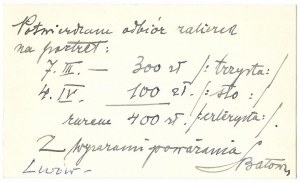 Potwierdzam odbiór zaliczek
na portret:
7. III. — 300 zł /: trzysta :/
4. IV. 100 zł. /: sto :/
razem 400 zł /: czterysta :/.
Z wyrazami poważania
Lwów – SBatow